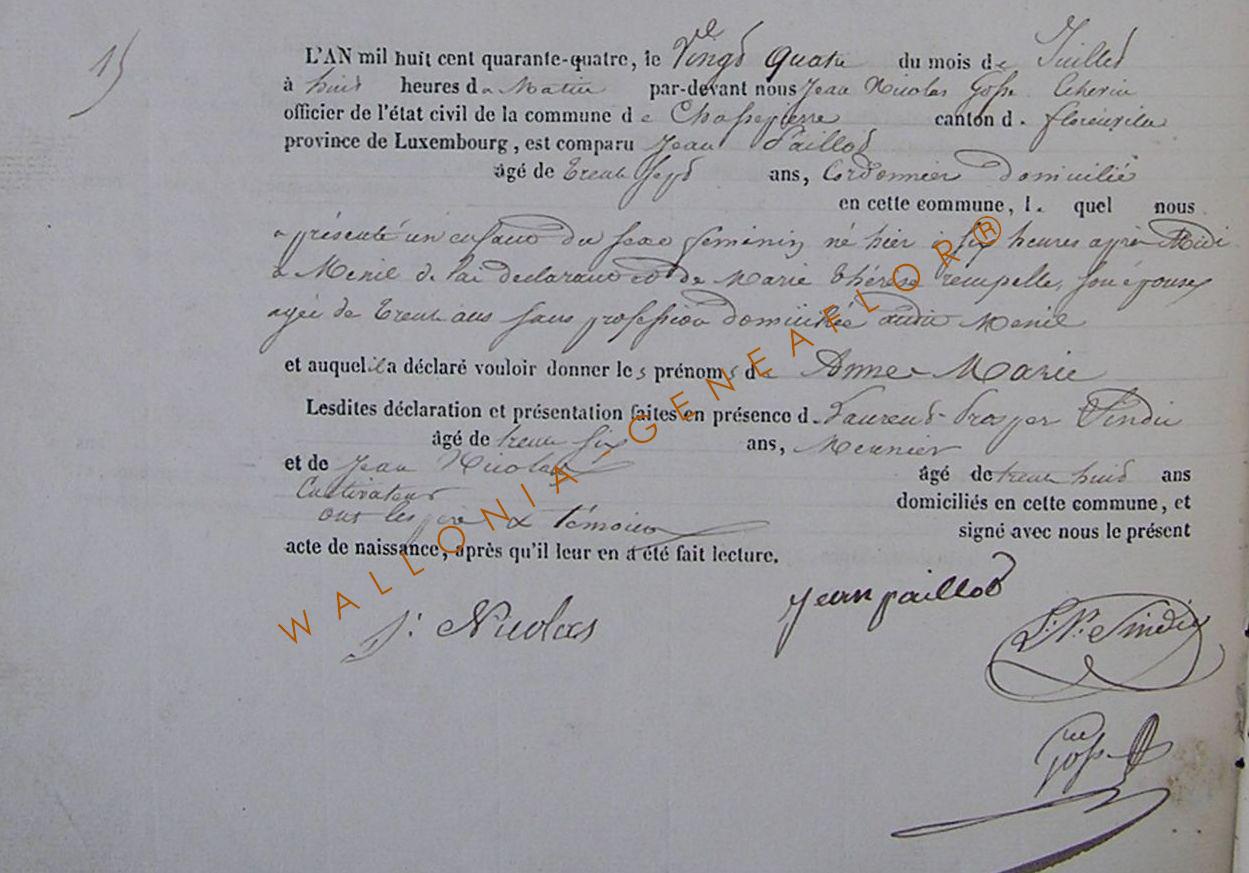 15
L'AN mil huit cent quarante-quatre, le Vingt quatre du mois de Juillet
à huit heures du Matin par-devant nous Jean Nicolas Gosse Echevin
officier de l'état civil de la commune de Chassepierre canton d. florenville
province de Luxembourg, est comparu Jean Paillot
âgé de trente sept ans, Cordonnier domicilié
en cette commune, l. quel nous
a présenté un enfant du sexe feminin né hier à six heures après Midi
à Menil de lui declarant et de Marie thérèse, son épouse
agée de trente ans sans profession domiciliée audit Menil
et auquel il a déclaré vouloir donner les prénoms de Anne Marie
Lesdites déclaration et présentation faites en présence d. Laurent Prosper Sindic
âgé de trente six ans, Meunier
et de Jean Nicolas âgé de trente huit ans
Cultivateur domiciliés en cette commune, et
ont les père & témoins signé avec nous le présent
acte de naissance, après qu'il leur en a été fait lecture.
J: Nicolas
jean paillot
L: P: Sindic
Gosse
WALLONIA-GENEAFLOR®